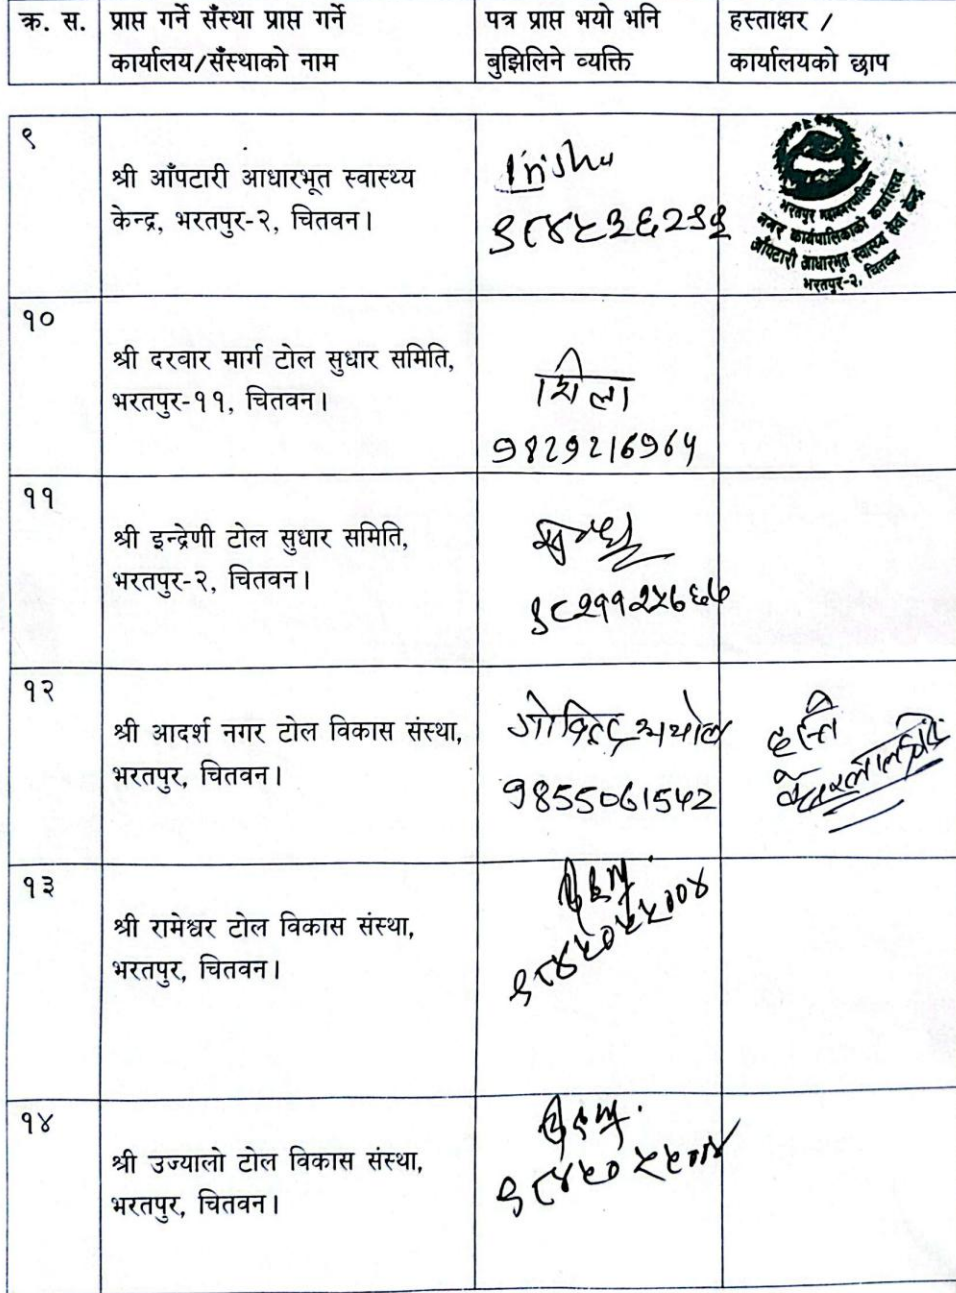 क्र. स.
प्राप्त गर्ने सँस्था प्राप्त गर्ने
कार्यालय/सँस्थाको नाम
पत्र प्राप्त भयो भनि
बुझिलिने व्यक्ति
हस्ताक्षर /
कार्यालयको छाप
९
श्री आँपटारी आधारभूत स्वास्थ्य
केन्द्र, भरतपुर-२, चितवन।
भरतपुर महानगरपालिका
नगर कार्यपालिकाको कार्यालय
आँपटारी आधारभूत स्वास्थ्य सेवा केन्द्र
भरतपुर-२, चितवन
१०
श्री दरवार मार्ग टोल सुधार समिति,
भरतपुर-११, चितवन।
शिला
9829216964
११
श्री इन्द्रेणी टोल सुधार समिति,
भरतपुर-२, चितवन।
१२
श्री आदर्श नगर टोल विकास संस्था,
भरतपुर, चितवन।
9855061542
१३
श्री रामेश्वर टोल विकास संस्था,
भरतपुर, चितवन।
९८४५०५५००४
१४
श्री उज्यालो टोल विकास संस्था,
भरतपुर, चितवन।